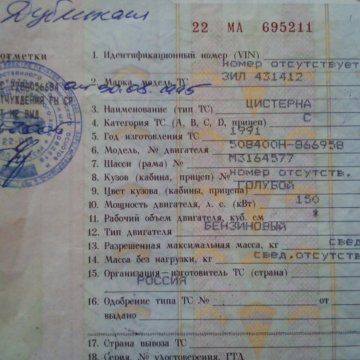 Дубликат
22 МА 695211
1. Идентификационный номер (VIN)
номер отсутствует
2. Марка, модель ТС ЗИЛ 431412
3. Наименование (тип ТС) ЦИСТЕРНА
4. Категория ТС (А, В, С, D, прицеп) С
5. Год изготовления ТС 1991
6. Модель, № двигателя 508400Н-866958
7. Шасси (рама) № М3164577
8. Кузов (кабина, прицеп) № номер отсутств.
9. Цвет кузова (кабина, прицепа) ГОЛУБОЙ
10. Мощность двигателя, л. с. (кВт) 150
11. Рабочий объем двигателя, куб. см *
12. Тип двигателя БЕНЗИНОВЫЙ
13. Разрешенная максимальная масса, кг свед
14. Масса без нагрузки, кг свед.отсутст
15. Организация-изготовитель ТС (страна)
РОССИЯ
16. Одобрение типа ТС № от
выдано
17. Страна вывоза ТС
18. Серия, № удостоверения, ГТД
отметки
ОТЧУЖДЕНИЯ